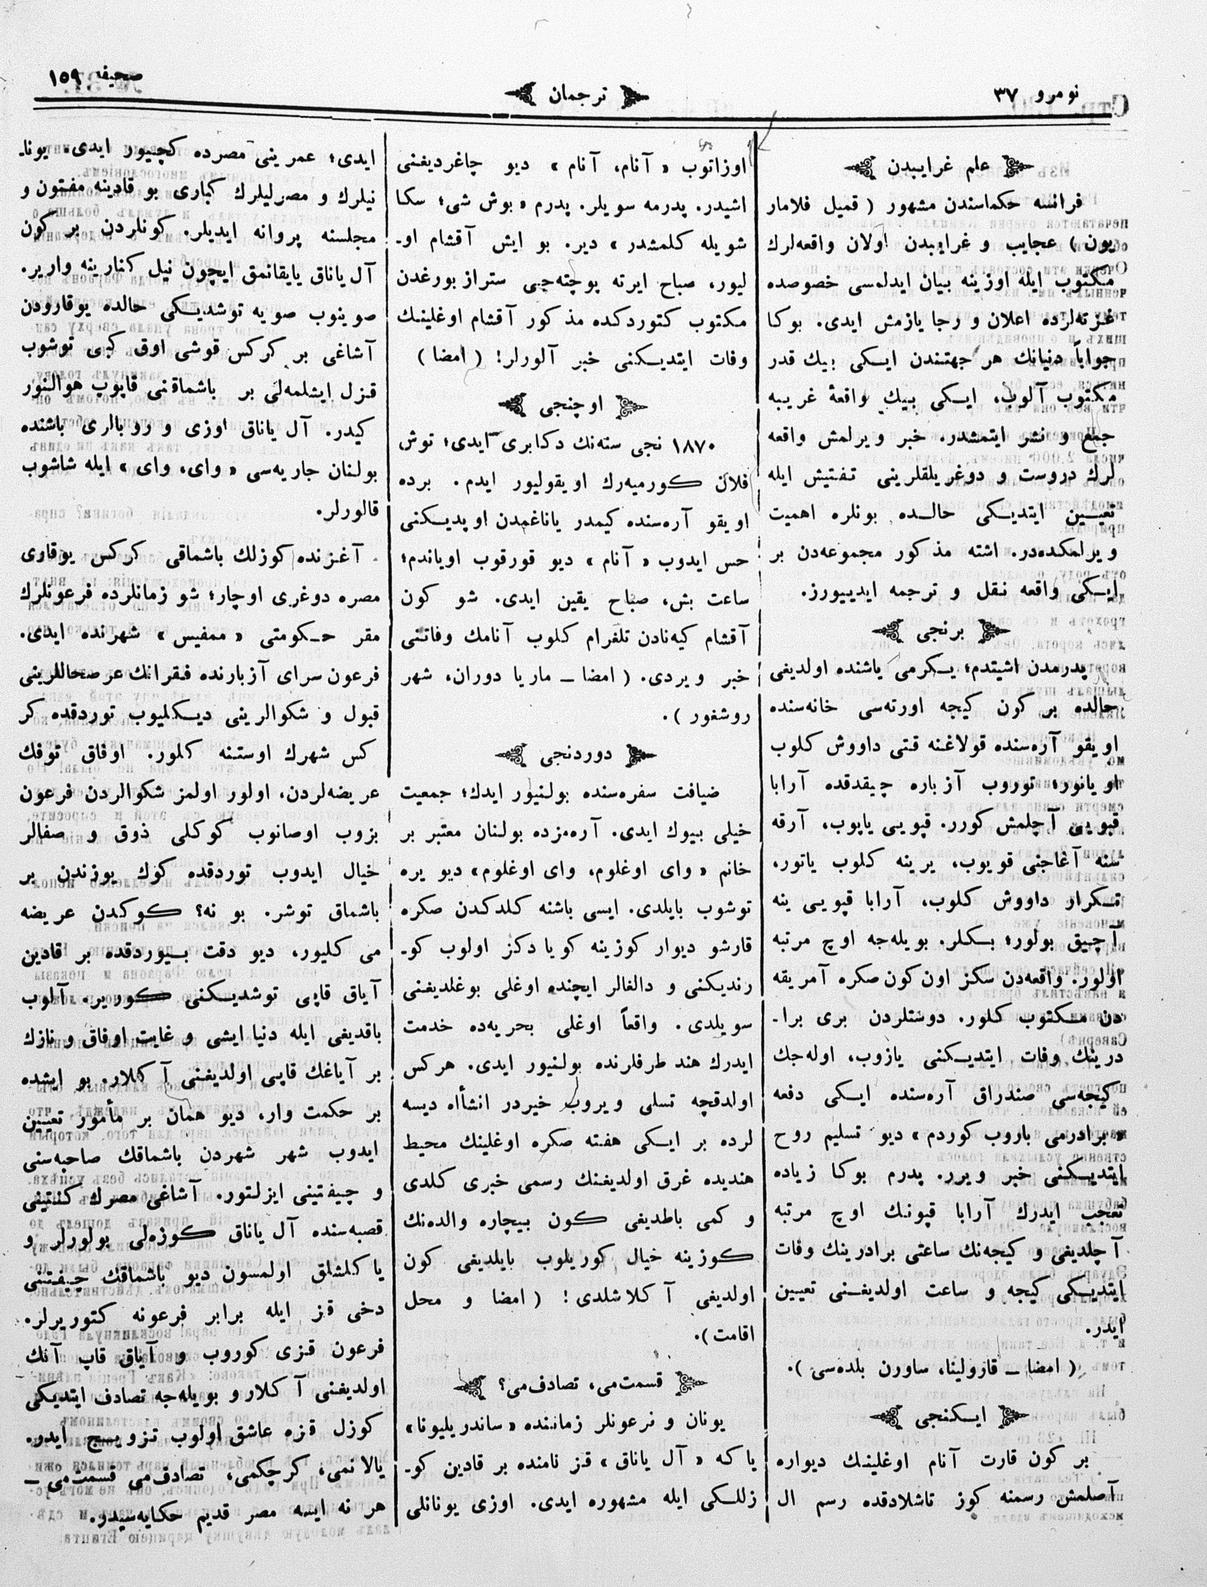 نومرو ٣٧
ترجمان
صحیفه ١٥٩
علم غرایبدن
فرانسه حکماسندن مشهور ( قمیل فلامار
یون ) عجایب و غرایبدن اولان واقعه‌لرك
مکتوب ایله اوزینه بیان ایدلمسی خصوصده
غزته‌لرده اعلان و رجا یازمش ایدی. بوکا
جواباً دنیانك هر جهتندن ایکی بیك قدر
مکتوب آلوب، ایکی بیك واقعهٔ غریبه
جمع و نشر ایتمشدر. خبر ویرلمش واقعه
لرك دروست و دوغریلقلرینی تفتیش ایله
تعیین ایتدیکی حالده بونلره اهمیت
ویرلمکده‌در. اشته مذکور مجموعه‌دن بر
ایکی واقعه نقل و ترجمه ایدییورز.
برنجی
پدرمدن اشیتدم؛ یکرمی یاشنده اولدیغی
حالده بر کون کیجه اورته‌سی خانه‌سنده
اویقو آره‌سنده قولاغنه قتی داووش کلوب
اویانور؛ توروب آزباره چیقدقده آرابا
قپویی آچلمش کورر. قپویی یاپوب، آرقه
سنه آغاجنی قویوب، یرینه کلوب یاتور.
تکرار داووش کلوب، آرابا قپویی ینه
آچیق بولور؛ بکلر. بویله‌جه اوچ مرتبه
اولور. واقعه‌دن سکز اون کون صکره آمریقه
دن مکتوب کلور. دوستلردن بری برا-
درینك وفات ایتدیکنی یازوب، اوله‌جك
کیجه‌سی صندراق آره‌سنده ایکی دفعه
« برادرمی باروب کوردم » دیو تسلیم روح
ایتدیکنی خبر ویرر. پدرم بوکا زیاده
تعجب ایدرك آرابا قپونك اوچ مرتبه
آچلدیغی و کیجه‌نك ساعتی برادرینك وفات
ایتدیکی کیجه و ساعت اولدیغنی تعیین
ایدر.
( امضا ـ قازولینا، ساورن بلده‌سی ).
ایکنجی
بر کون قارت آنام اوغلینك دیواره
آصلمش رسمنه کوز تاشلادقده رسم ال
اوزاتوب « آنام، آنام » دیو چاغردیغنی
اشیدر. پدرمه سویلر. پدرم « بوش شی؛ سکا
شویله کلمشدر » دیر. بو ایش آقشام او-
لیور، صباح ایرته پوچته‌جی ستراز بورغدن
مکتوب کتوردکده مذکور آقشام اوغلینك
وفات ایتدیکنی خبر آلورلر! ( امضا )
اوچنجی
١٨٧٠ نجی سنه‌نك دکابری ایدی؛ توش
فلان کورمیه‌رك اویقولیور ایدم. برده
اویقو آره‌سنده کیمدر یاناغمدن اوپدیکنی
حس ایدوب « آنام » دیو قورقوب اویاندم؛
ساعت بش، صباح یقین ایدی. شو کون
آقشام کیه‌نادن تلغرام کلوب آنامك وفاتنی
خبر ویردی. ( امضا ـ ماریا دوران، شهر
روشفور ).
دوردنجی
ضیافت سفره‌سنده بولنیور ایدك؛ جمعیت
خیلی بیوك ایدی. آره‌مزده بولنان معتبر بر
خانم « وای اوغلوم، وای اوغلوم» دیو یره
توشوب بایلدی. ایسی باشنه کلدکدن صکره
قارشو دیوار کوزینه کویا دکز اولوب کو-
رندیکنی و دالغالر ایچنده اوغلی بوغلدیغنی
سویلدی. واقعاً اوغلی بحریه‌ده خدمت
ایدرك هند طرفلرنده بولنیور ایدی. هرکس
اولدقچه تسلی ویروب خیردر انشأاه دیسه
لرده بر ایکی هفته صکره اوغلینك محیط
هندیده غرق اولدیغنك رسمی خبری کلدی
و کمی باطدیغی کون بیچاره والده‌نك
کوزینه خیال کوریلوب بایلدیغی کون
اولدیغی آکلاشلدی! ( امضا و محل
اقامت ).
قسمت‌می، تصادف‌می؟
یونان و فرعونلر زماننده « ساندریلیونا»
یا که « آل یاناق » قز نامنده بر قادین کو-
زللکی ایله مشهوره ایدی. اوزی یونانلی
ایدی؛ عمرینی مصرده کچیور ایدی. یونا-
نیلرك و مصرلیلرك کباری بو قادینه مفتون و
مجلسنه پروانه ایدیلر. کونلردن بر کون
آل یاناق یایقانمق ایچون نیل کنارینه واریر.
صوینوب صویه توشدیکی حالده یوقارودن
آشاغی بر کرکس قوشی اوق کبی توشوب
قزل ایشلمه‌لی بر باشماقنی قاپوب هوالنور
کیدر. آل یاناق اوزی و روبالری باشنده
بولنان جاریه‌سی « وای، وای » ایله شاشوب
قالورلر.
آغزنده کوزلك باشماقی کرکس یوقاری
مصره دوغری اوچار؛ شو زمانلرده فرعونلرك
مقر حکومتی « ممفیس » شهرنده ایدی.
فرعون سرای آزبارنده فقرانك عرضحاللرینی
قبول و شکوالرینی دیکلمیوب توردقده کر
کس شهرك اوستنه کلمور. اوفاق توفك
عریضه‌لردن، اولور اولمز شکوالردن فرعون
بزوب اوصانوب کوکلی ذوق و صفالر
خیال ایدوب توردقده کوك یوزندن بر
باشماق توشر. بو نه؟ کوکدن عریضه
می کلیور، دیو دقت بیوردقده بر قادین
آیاق قاپی توشدیکنی کوریر. آلوب
باقدیغی ایله دنیا ایشی و غایت اوفاق و نازك
بر آیاغك قاپی اولدیغنی آکلار. بو ایشده
بر حکمت وار، دیو همان بر مأمور تعیین
ایدوب شهر شهردن باشماقك صاحبه‌سنی
و چیفتینی ایزلتور. آشاغی مصرك
قصبه‌سنده آل یاناق کوزه‌لی بولورلر و
یا کلشلق اولمسون دیو باشماقك چیفتینی
دخی قز ایله برابر فرعونه کتوریرلر.
فرعون قزی کوروب و آیاق قاپ آنك
اولدیغنی آکلار و بویله‌جه تصادف ایتدیکی
کوزل قزه عاشق اولوب تزویج ایدر.
یالانمی، کرچکمی، تصادف‌می قسمت‌می ـ
هر نه ایسه مصر قدیم حکایه‌سیدر.